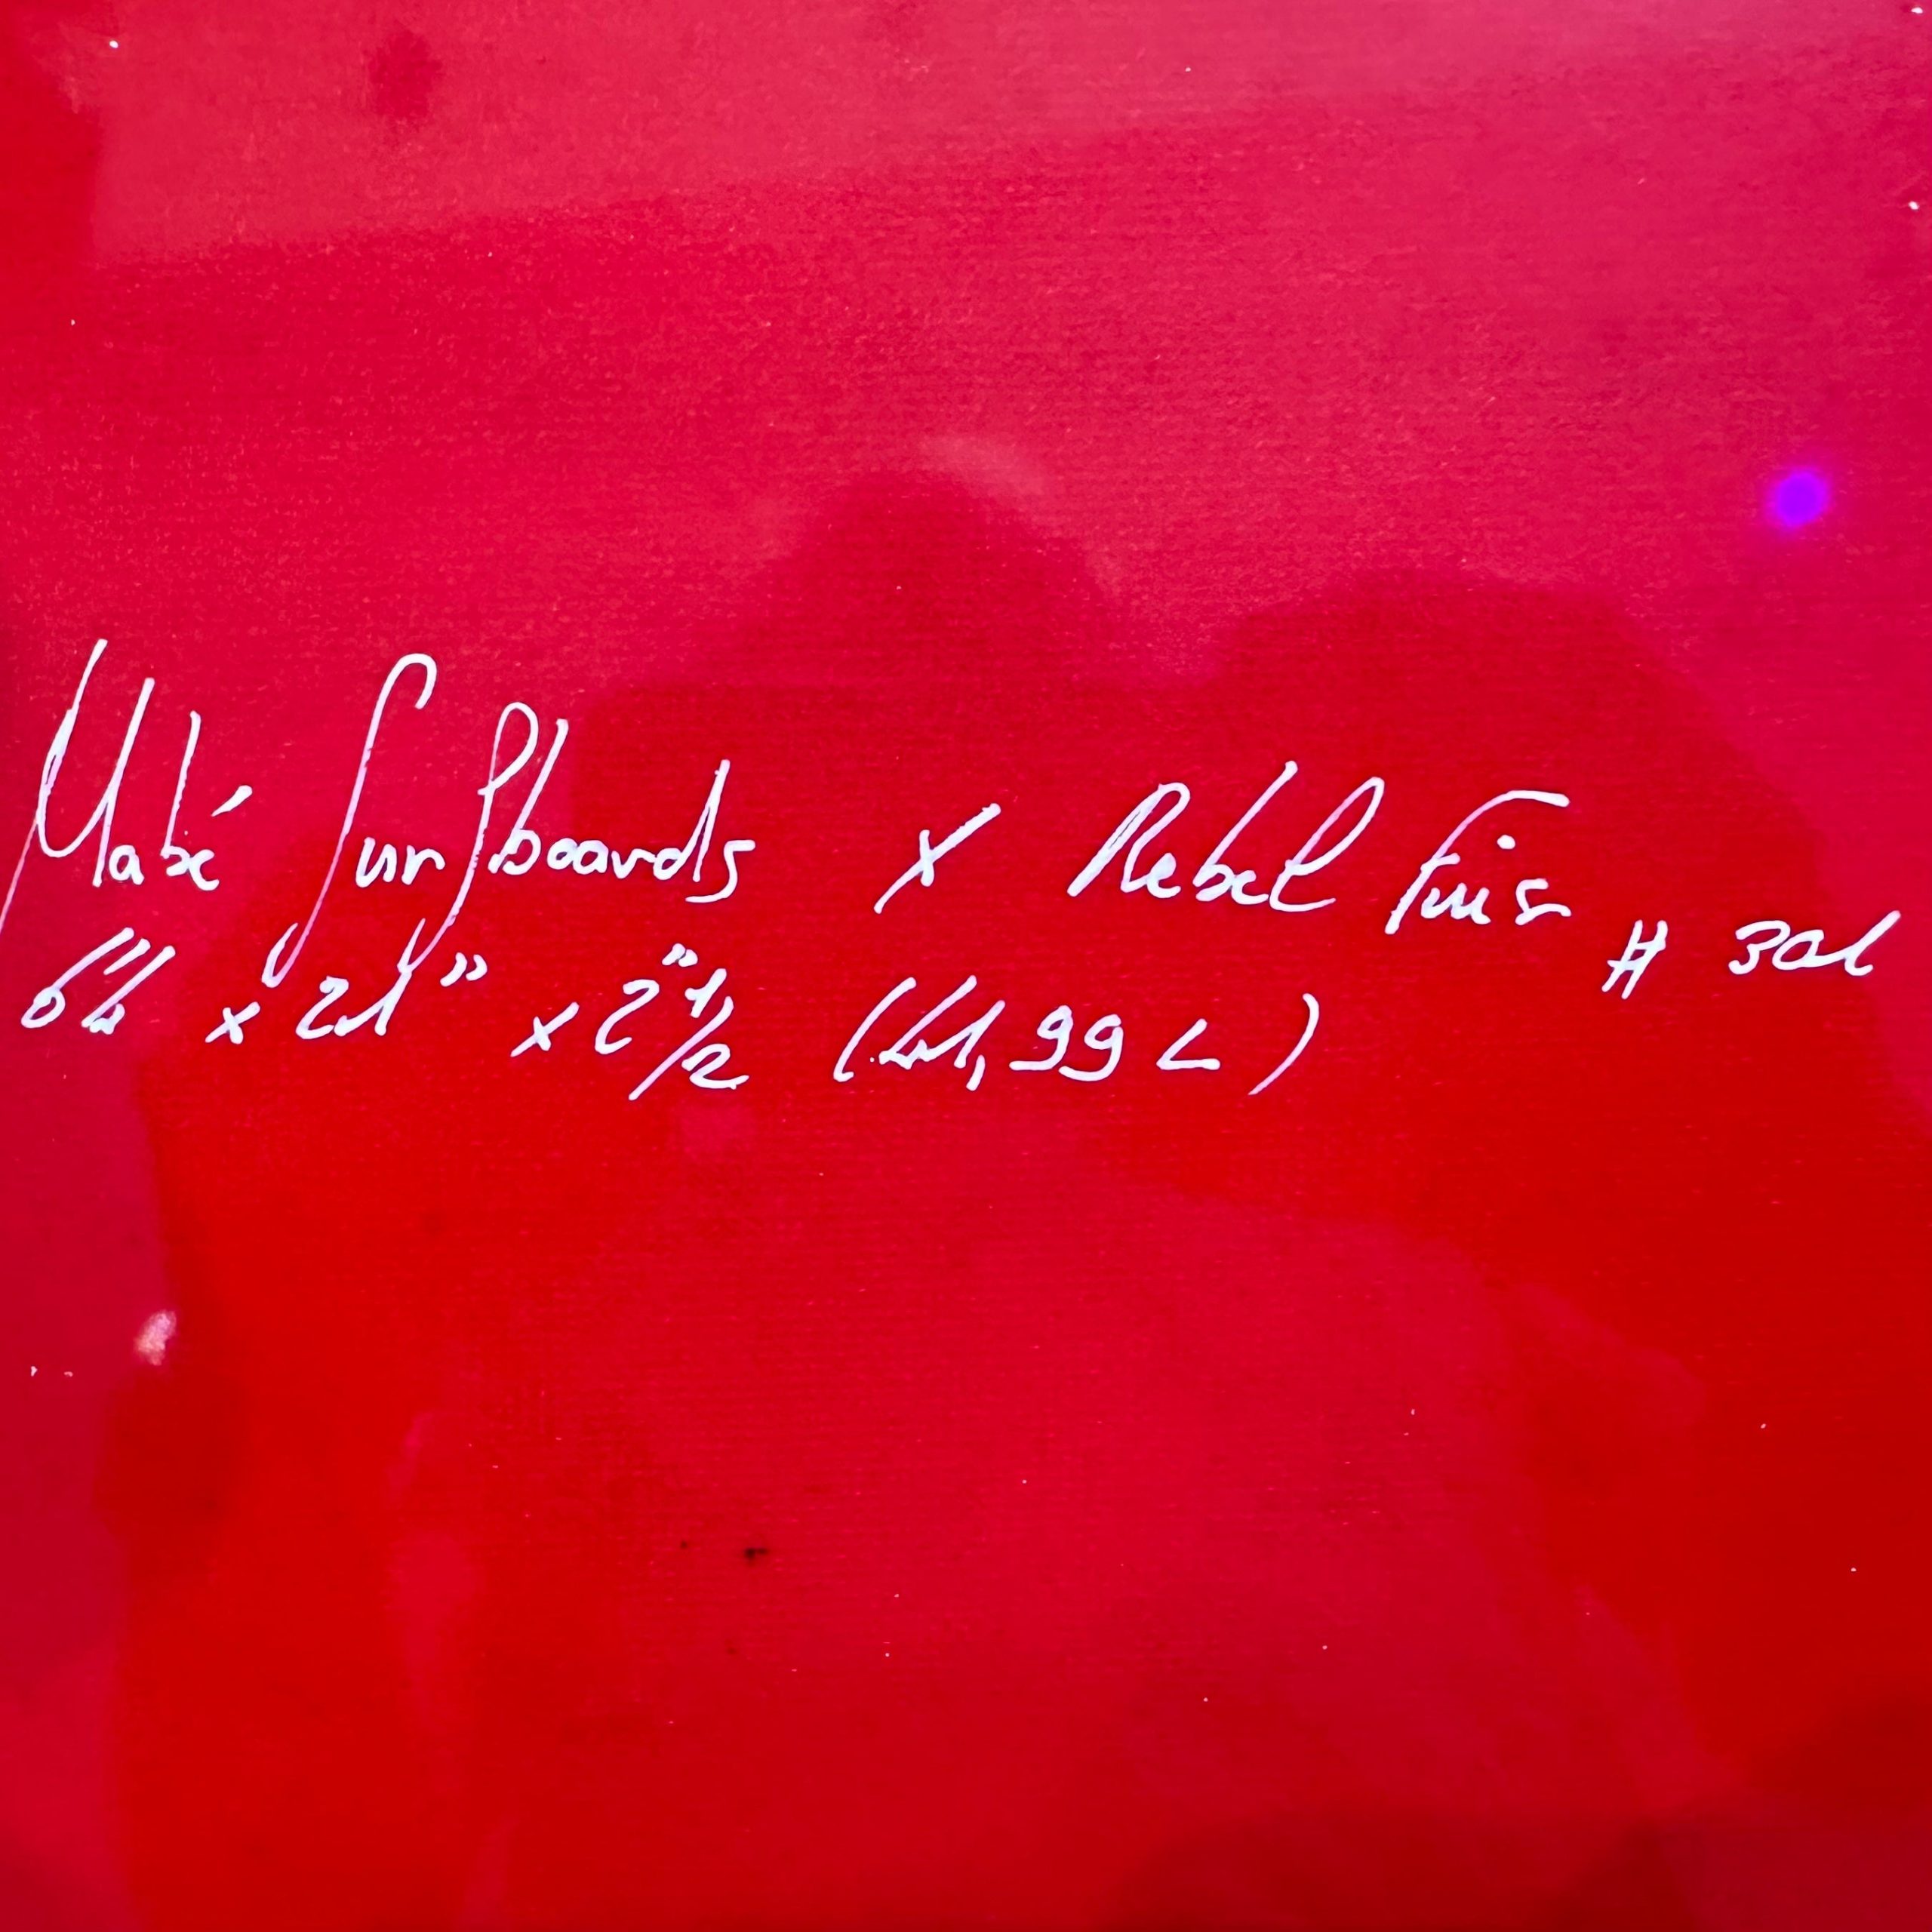 Mabé Surfboards x Rebel Fins # 301
6'4 x 21" x 2"1/2 (41,99 L)